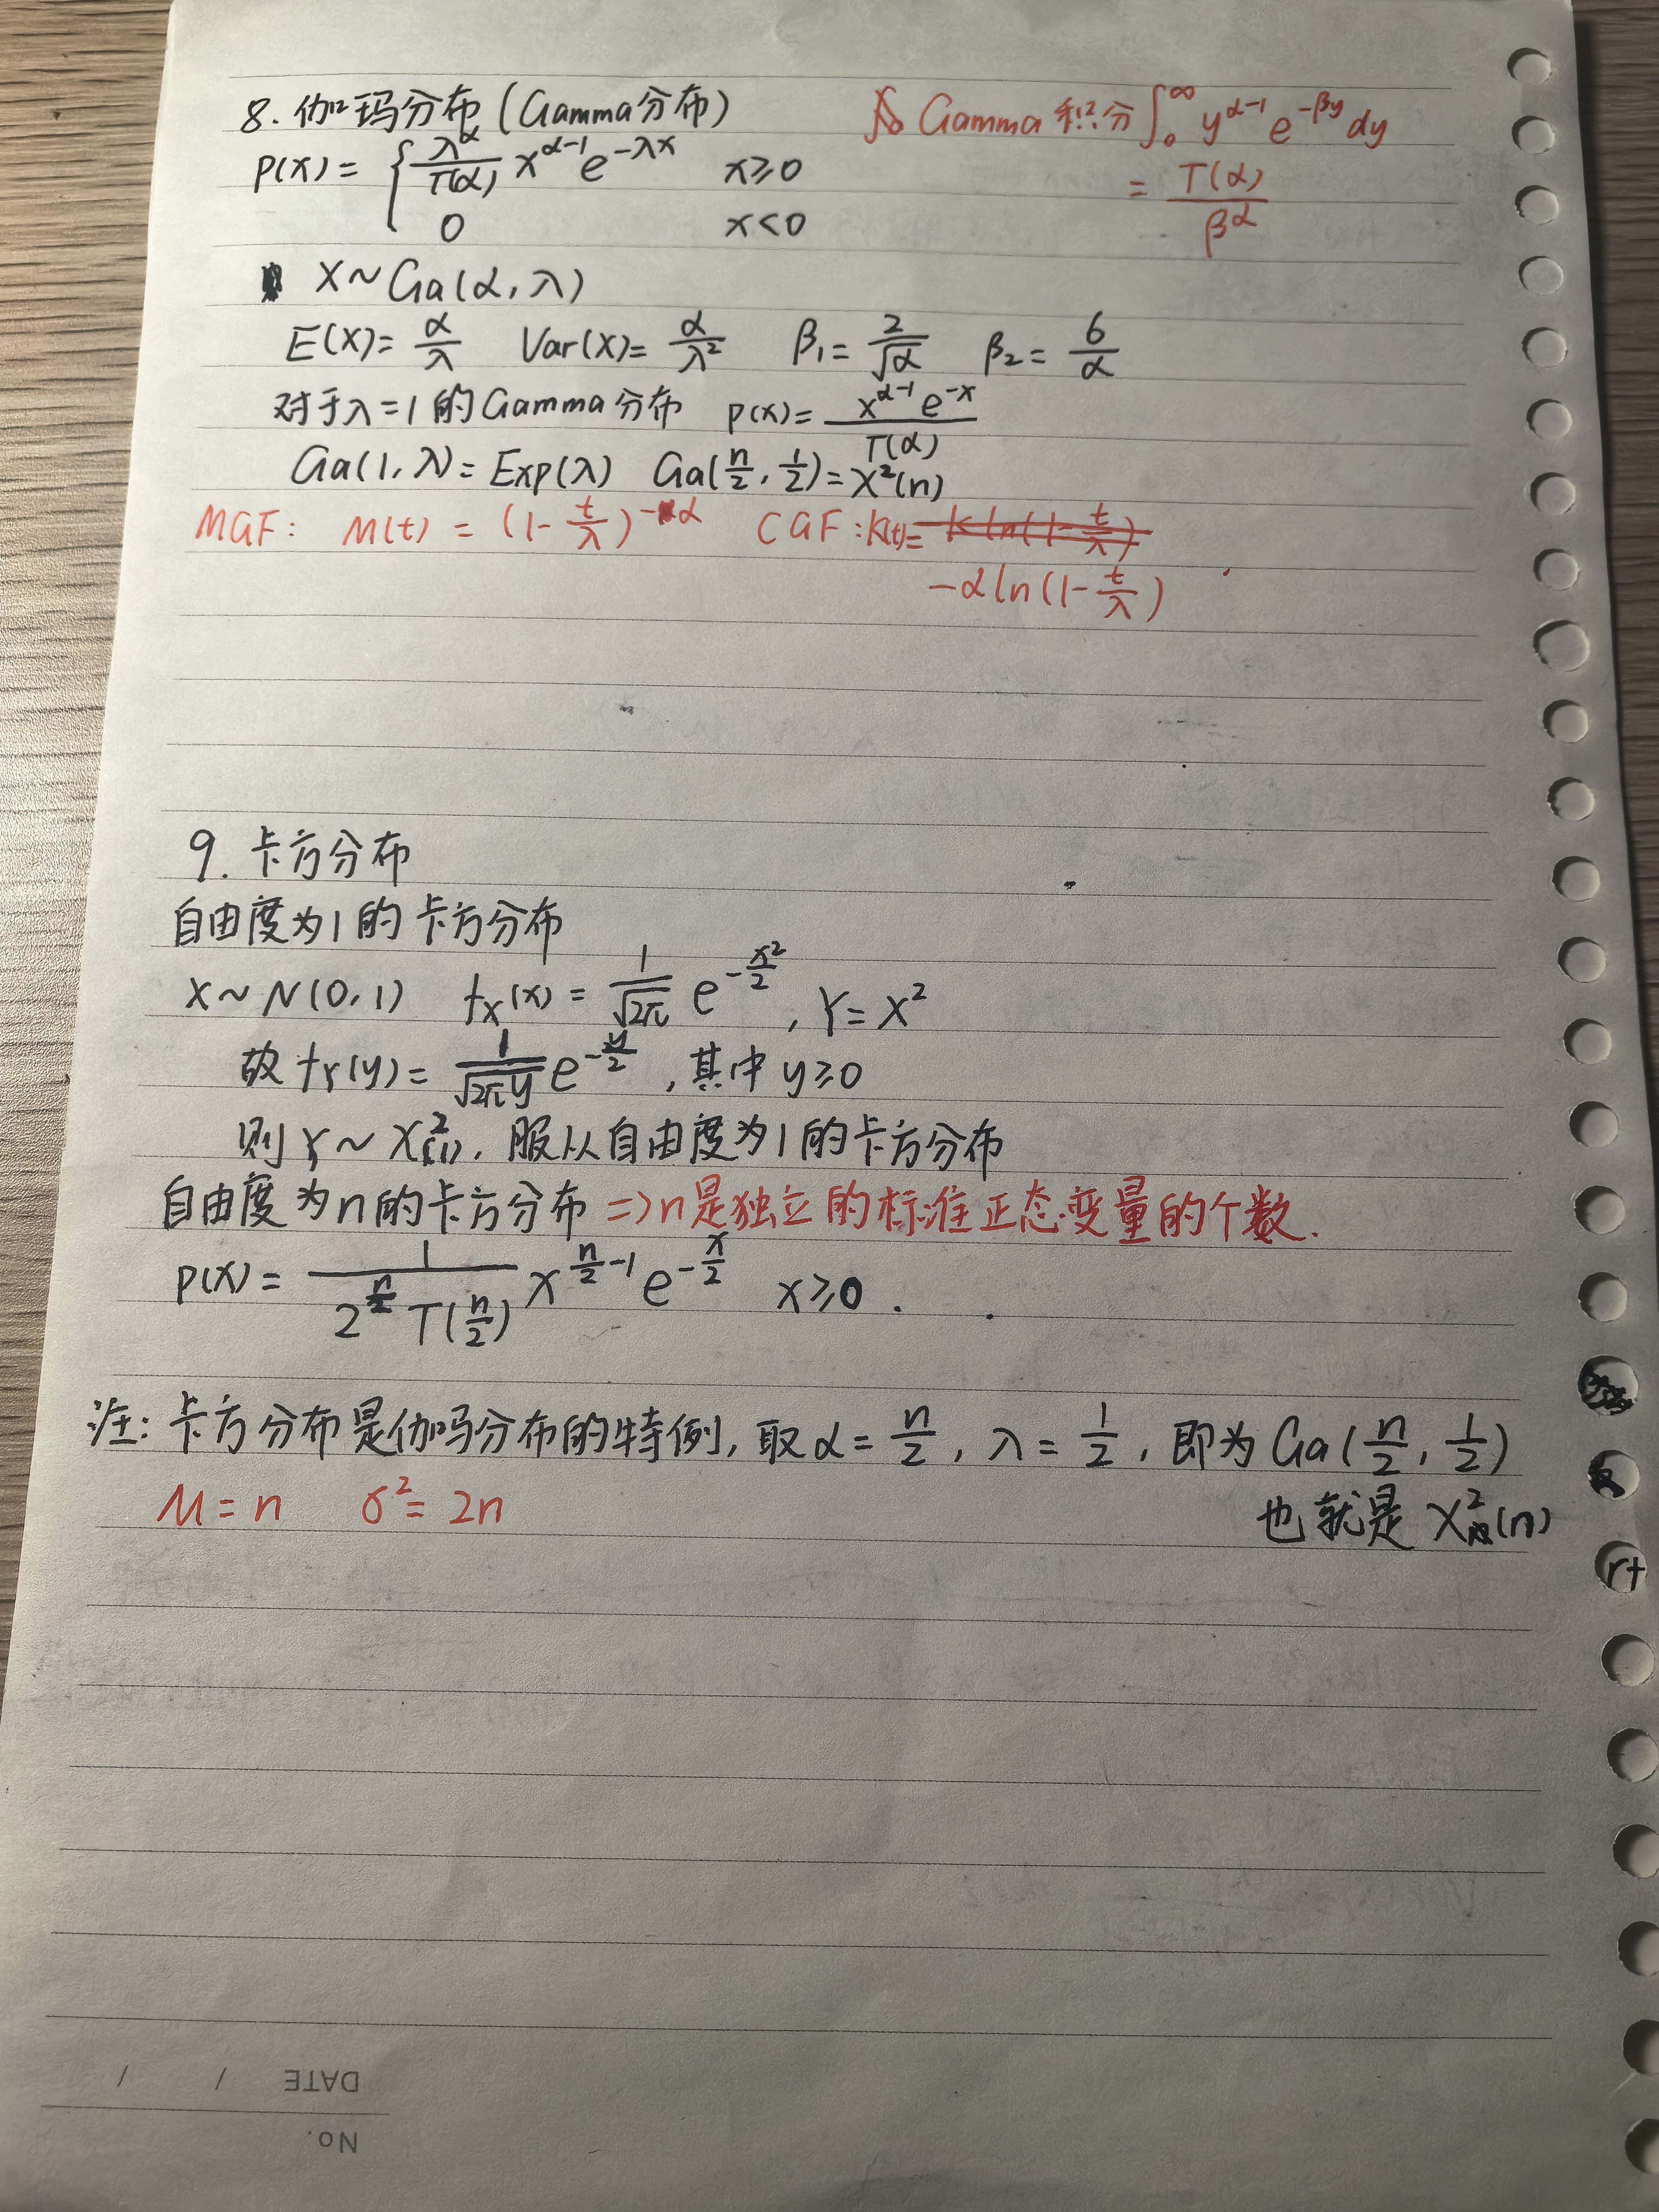 8. 伽玛分布 (Gamma分布)
Gamma 积分 ∫₀^∞ y^(α-1) e^(-βy) dy
= Γ(α) / β^α
P(x) = { λ^α/Γ(α) x^(α-1) e^(-λx)  x≥0
0  x<0
X~Ga(α, λ)
E(X)= α/λ  Var(X)= α/λ²  β₁= 2/√α  β₂= 6/α
对于λ=1的Gamma分布  P(x)= x^(α-1) e^(-x) / Γ(α)
Ga(1, λ)= Exp(λ)  Ga(n/2, 1/2)=χ²(n)
MGF: M(t) = (1- t/λ)^(-α)  CGF: K(t)= -k ln(1- t/λ)
-α ln(1- t/λ)
9. 卡方分布
自由度为1的卡方分布
X~N(0,1)  f_X(x) = 1/√(2π) e^(-x²/2), Y=X²
故 f_Y(y)= 1/√(2πy) e^(-y/2), 其中 y≥0
则 Y~χ²(1), 服从自由度为1的卡方分布
自由度为n的卡方分布 => n是独立的标准正态变量的个数.
P(x)= 1/(2^(n/2) Γ(n/2)) x^(n/2-1) e^(-x/2)  x≥0.
注: 卡方分布是伽玛分布的特例, 取α= n/2, λ= 1/2, 即为Ga(n/2, 1/2)
也就是 χ²(n)
μ=n  σ²=2n
r+
DATE / /
No.